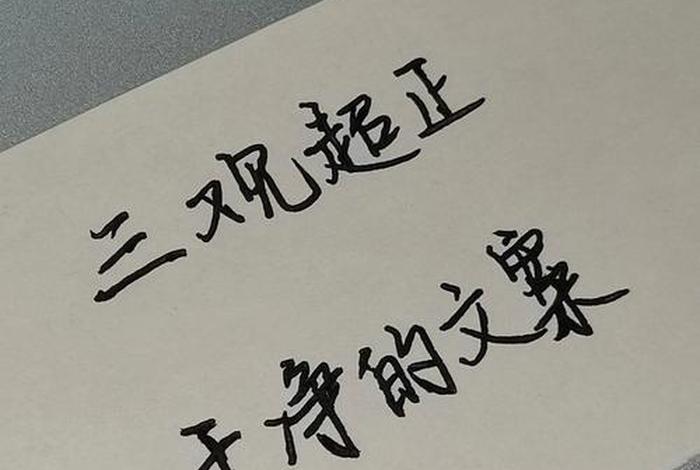 三观超正
干净的文案